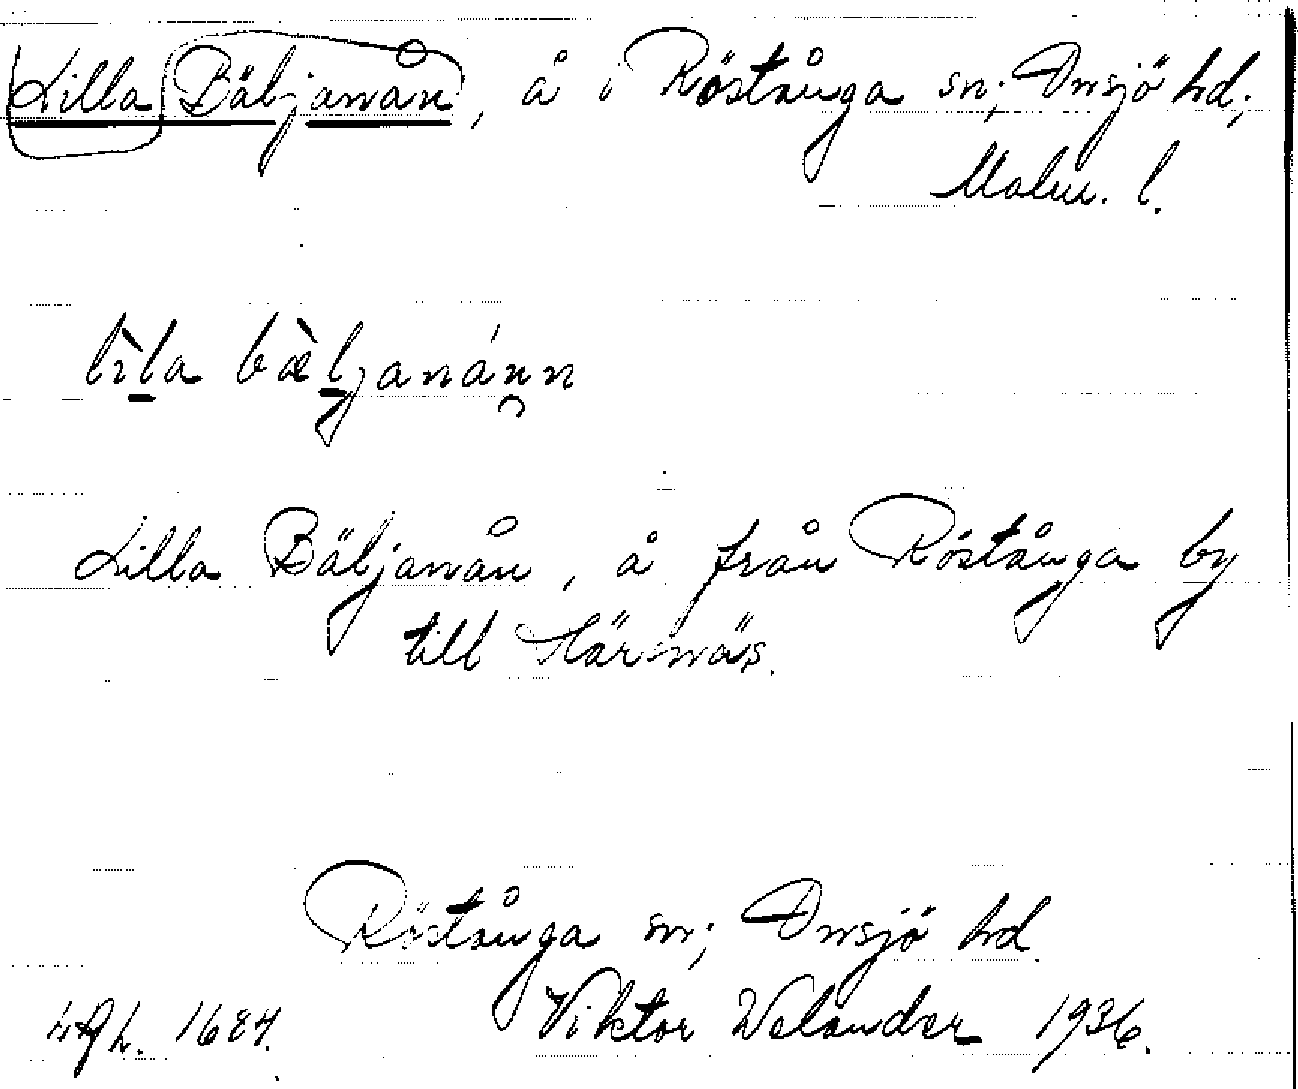 Lilla Bäljanån, å i Röstånga sn; Onsjö hd;
Malm. l.
lìla bæ̀ljanánn
Lilla Bäljanån, å från Röstånga by
till Härsnäs.
Röstånga sn; Onsjö hd.
Viktor Welander 1936.
1684.